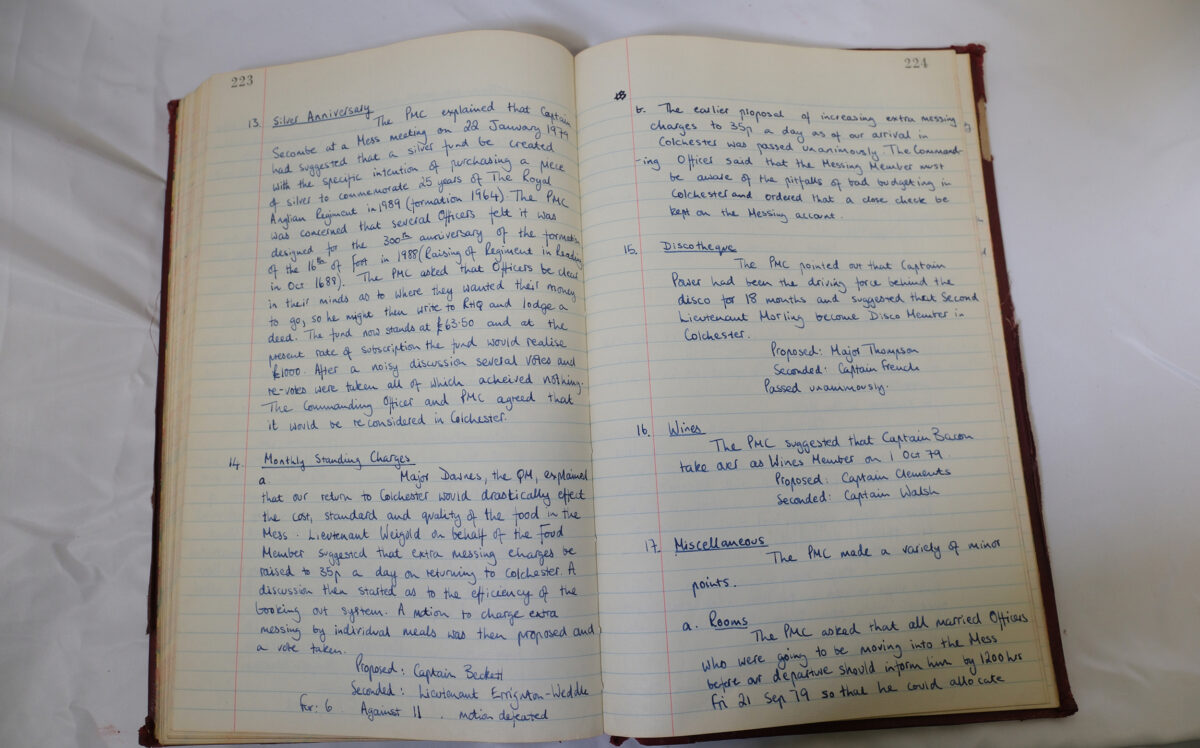 223
13. Silver Anniversary
The PMC explained that Captain
Secombe at a Mess meeting on 22 January 1979
had suggested that a silver fund be created
with the specific intention of purchasing a piece
of silver to commemorate 25 years of The Royal
Anglian Regiment in 1989 (formation 1964). The PMC
was concerned that several Officers felt it was
designed for the 300th anniversary of the formation
of the 16th of Foot in 1988 (Raising of Regiment in Reading
in Oct 1688). The PMC asked that Officers be clear
in their minds as to where they wanted their money
to go, so he might then write to RHQ and lodge a
deed. The fund now stands at £63.50 and at the
present rate of subscription the fund would realise
£1000. After a noisy discussion several votes and
re-votes were taken all of which acheived nothing.
The Commanding Officer and PMC agreed that
it would be reconsidered in Colchester.
14. Monthly Standing Charges
a Major Dawnes, the QM, explained
that our return to Colchester would drastically effect
the cost, standard and quality of the food in the
Mess. Lieutenant Weigold on behalf of the Food
Member suggested that extra messing charges be
raised to 35p a day on returning to Colchester. A
discussion then started as to the efficiency of the
booking out system. A motion to charge extra
messing by individual meals was then proposed and
a vote taken.
Proposed: Captain Beckett
Seconded: Lieutenant Errington-Weddle
For: 6 Against 11. motion defeated
224
b. The earlier proposal of increasing extra messing
charges to 35p a day as of our arrival in
Colchester was passed unanimously. The Command-
-ing Officer said that the Messing Member must
be aware of the pitfalls of bad budgeting in
Colchester and ordered that a close check be
kept on the Messing account.
15. Discotheque
The PMC pointed out that Captain
Power had been the driving force behind the
disco for 18 months and suggested that Second
Lieutenant Morling become Disco Member in
Colchester.
Proposed: Major Thompson
Seconded: Captain French
Passed unanimously.
16. Wines
The PMC suggested that Captain Bacon
take over as Wines Member on 1 Oct 79.
Proposed: Captain Clements
Seconded: Captain Walsh
17. Miscellaneous
The PMC made a variety of minor
points.
a. Rooms
The PMC asked that all married Officers
who were going to be moving into the Mess
before our departure should inform him by 1200 hrs
Fri 21 Sep 79 so that he could allocate